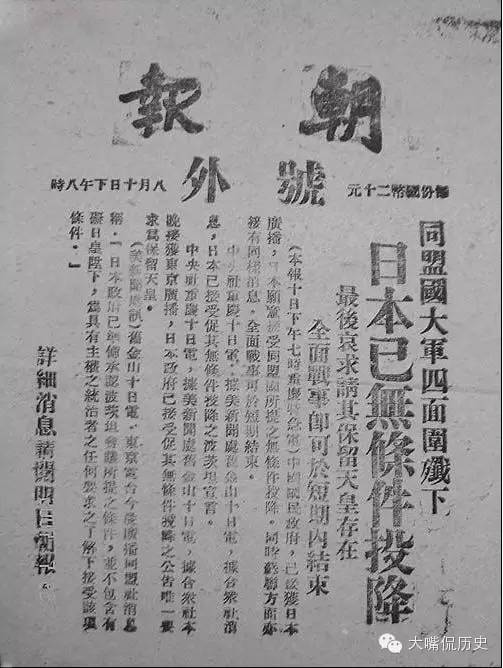 朝報
號外
每份國幣二十元
八月十日下午八時
同盟國大軍四面圍殲下
日本已無條件投降
最後哀求請其保留天皇存在
全面戰事即可於短期內結束
(本報十日下午七時重慶急電)中國國民政府,已接獲日本
廣播,日本願意接受同盟國所提之無條件投降。同時蘇聯方面亦
接有同樣消息。全面戰事可於短期結束。
中央社重慶十日電。據美新聞處舊金山十日電,據合衆社消
息,日本已接受促其無條件投降之波茨坦宣言。
中央社重慶十日電,據美新聞處舊金山十日電,據合衆社本
晚接獲東京廣播,日本政府已接受促其無條件投降之公告唯一要
求爲保留天皇。
(美新聞處訊)舊金山十日電。東京電台今晚廣播同盟社消息
稱:「日本政府已準備承認波茨坦會議所提之條件,並不包含有
礙日皇陛下,爲具有主權之統治者之任何要求之了解下接受該項
條件。」
詳細消息請閱明朝報
大嘴侃历史